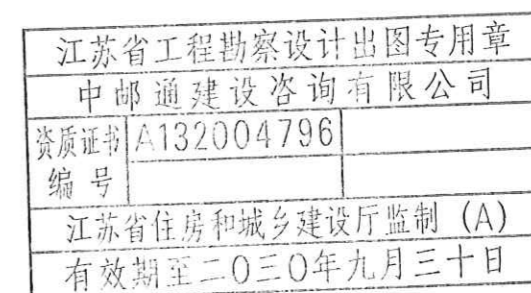 江苏省工程勘察设计出图专用章
中邮通建设咨询有限公司
资质证书 A132004796
编号
江苏省住房和城乡建设厅监制 (A)
有效期至二〇三〇年九月三十日